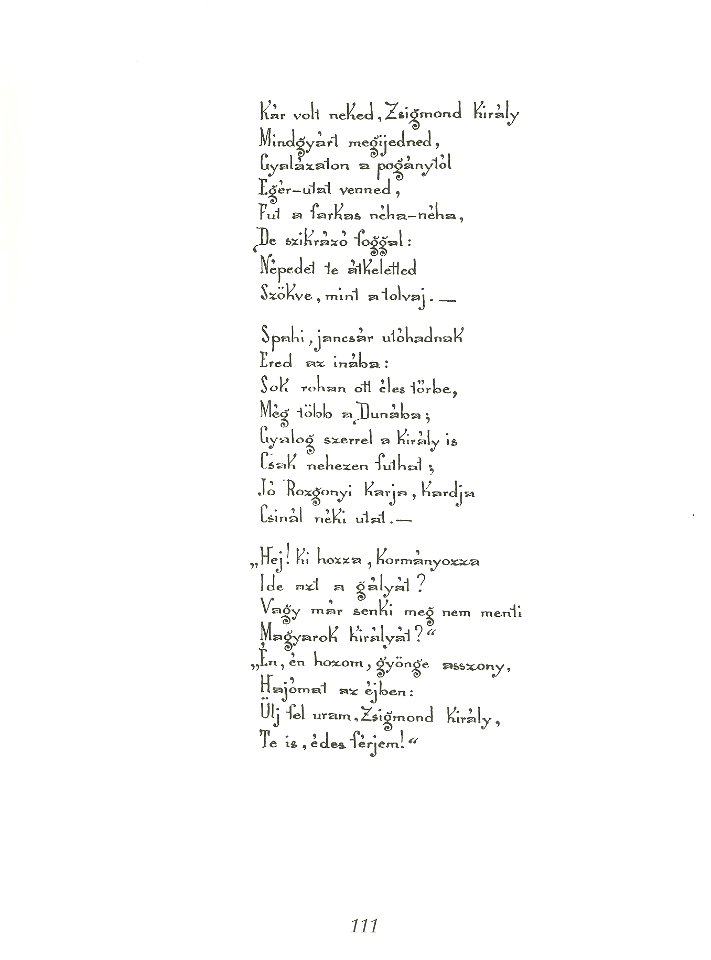 Kár volt neked, Zsigmond Király
Mindgyárt megijedned,
Gyalázaton a pogánytól
Egér-utat venned,
Fut a farkas néha-néha,
De szikrázó foggal:
Népedet te átkeletted
Szökve, mint a tolvaj. —
Spahi, jancsár utóhadnak
Ered az inába:
Sok rohan ott éles tőrbe,
Még több a Dunába;
Gyalog szerrel a király is
Csak nehezen futhat;
Jó Rozgonyi karja, kardja
Csinál néki utat. —
„Hej! ki hozza, kormányozza
Ide azt a gályát?
Vagy már senki meg nem menti
Magyarok királyát?“
„Én, én hozom, gyönge asszony,
Hajómat az éjben:
Ülj fel uram, Zsigmond Király,
Te is, édes férjem!“
111